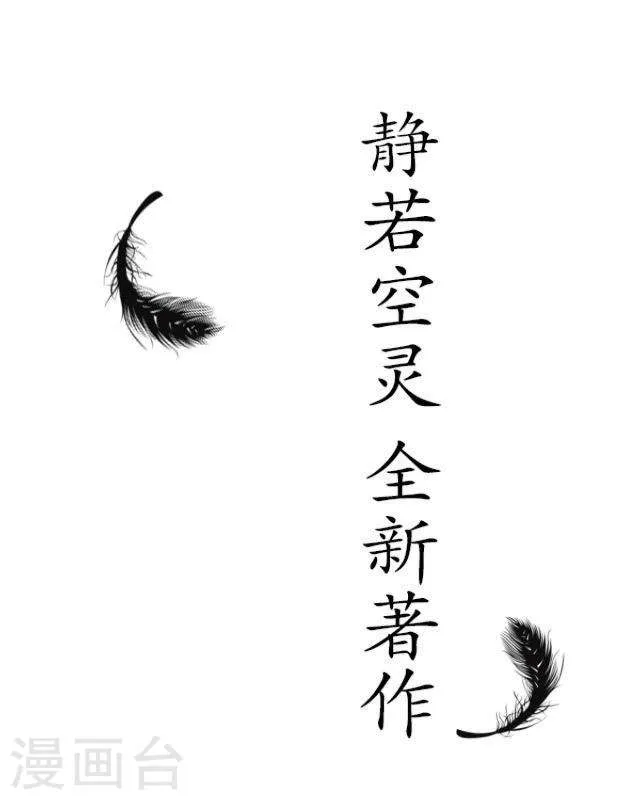 静若空灵 全新著作
漫画台